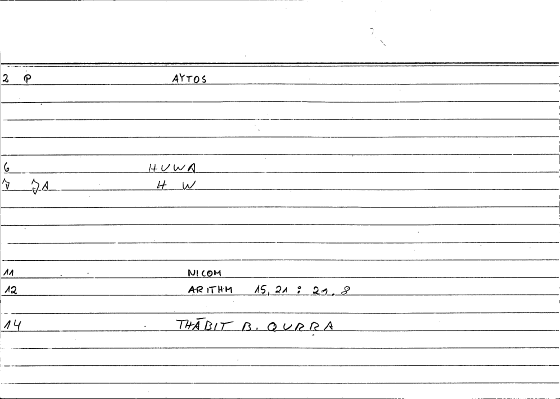 2 P AYTOS
6 HUWA
7 JA H W
11 NICOM
12 ARITHM 15,21 : 21,8
14 THĀBIT B. QURRA